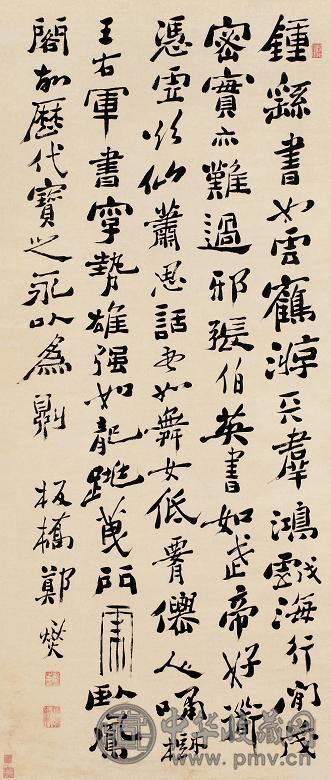 鍾繇書如雲鶴游天羣鴻戲海行間茂
密實亦難過邪張伯英書如武帝好道
憑虛欲仙蕭思話書如舞女低腰僊人嘯樹
王右軍書字勢雄强如龍跳天門虎臥鳳
閣故歷代寶之永以爲訓
板橋鄭燮
中华收藏网
www.pmv.cn